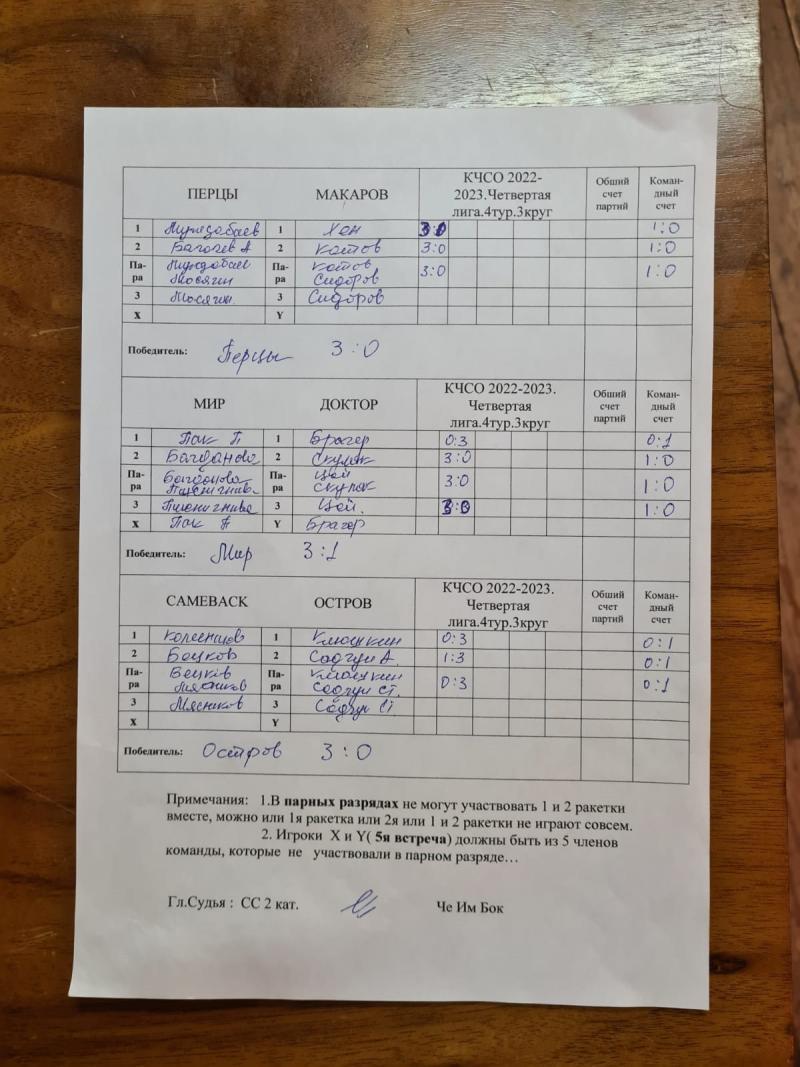 ПЕРЦЫ МАКАРОВ КЧСО 2022-2023.Четвертая лига.4тур.3круг Обший счет партий Коман-дный счет
1 1 Хан 3:0 1:0
2 Багаев А 2 Котов 3:0 1:0
Па-ра Мосягин Па-ра Котов Сидоров 3:0 1:0
3 Мосягин 3 Сидоров
X Y
Победитель: Перцы 3:0
МИР ДОКТОР КЧСО 2022-2023. Четвертая лига.4тур.3круг Обший счет партий Коман-дный счет
1 Пак П 1 Брагер 0:3 0:1
2 Багданова 2 Скуляк 3:0 1:0
Па-ра Багданова Па-ра Цой Скуляк 3:0 1:0
3 3 Цой. 3:0 1:0
X Пак П Y Брагер
Победитель: Мир 3:1
САМЕBACK ОСТРОВ КЧСО 2022-2023. Четвертая лига.4тур.3круг Обший счет партий Коман-дный счет
1 1 Клюшкин 0:3 0:1
2 2 Садгун А. 1:3 0:1
Па-ра Мясников Па-ра Клюшкин Садгун Ст. 0:3 0:1
3 Мясников 3 Садгун Ст
X Y
Победитель: Остров 3:0
Примечания: 1.В парных разрядах не могут участвовать 1 и 2 ракетки
вместе, можно или 1я ракетка или 2я или 1 и 2 ракетки не играют совсем.
2. Игроки X и Y( 5я встреча) должны быть из 5 членов
команды, которые не участвовали в парном разряде…
Гл.Судья : СС 2 кат. Че Им Бок